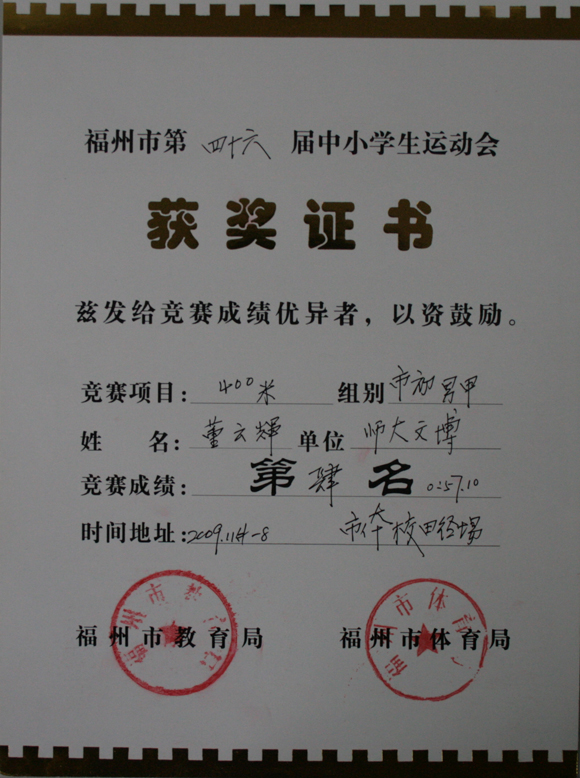 福州市第 四十六 届中小学生运动会
获奖证书
兹发给竞赛成绩优异者，以资鼓励。
竞赛项目： 400米 组别 市初男甲
姓 名： 董云辉 单位 师大文博
竞赛成绩： 第肆名 0:57.10
时间地址： 2009.11.4-8 市体校田径场
福州市教育局 福州市体育局
福州市教育局
福州市体育局